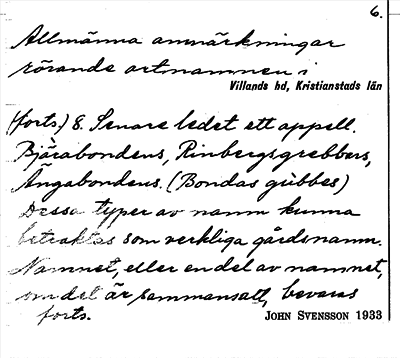 6.
Allmänna anmärkningar
rörande ortnamnen i
Villands hd, Kristianstads län
(forts.) 8. Senare ledet ett appell.
Bjärabondens, Rinbergsgrebbers,
Ängabondens. (Bondas gubbes)
Dessa typer av namn kunna
betraktas som verkliga gårdsnamn.
Namnet, eller en del av namnet,
om det är sammansatt, bevaras
forts.
JOHN SVENSSON 1933